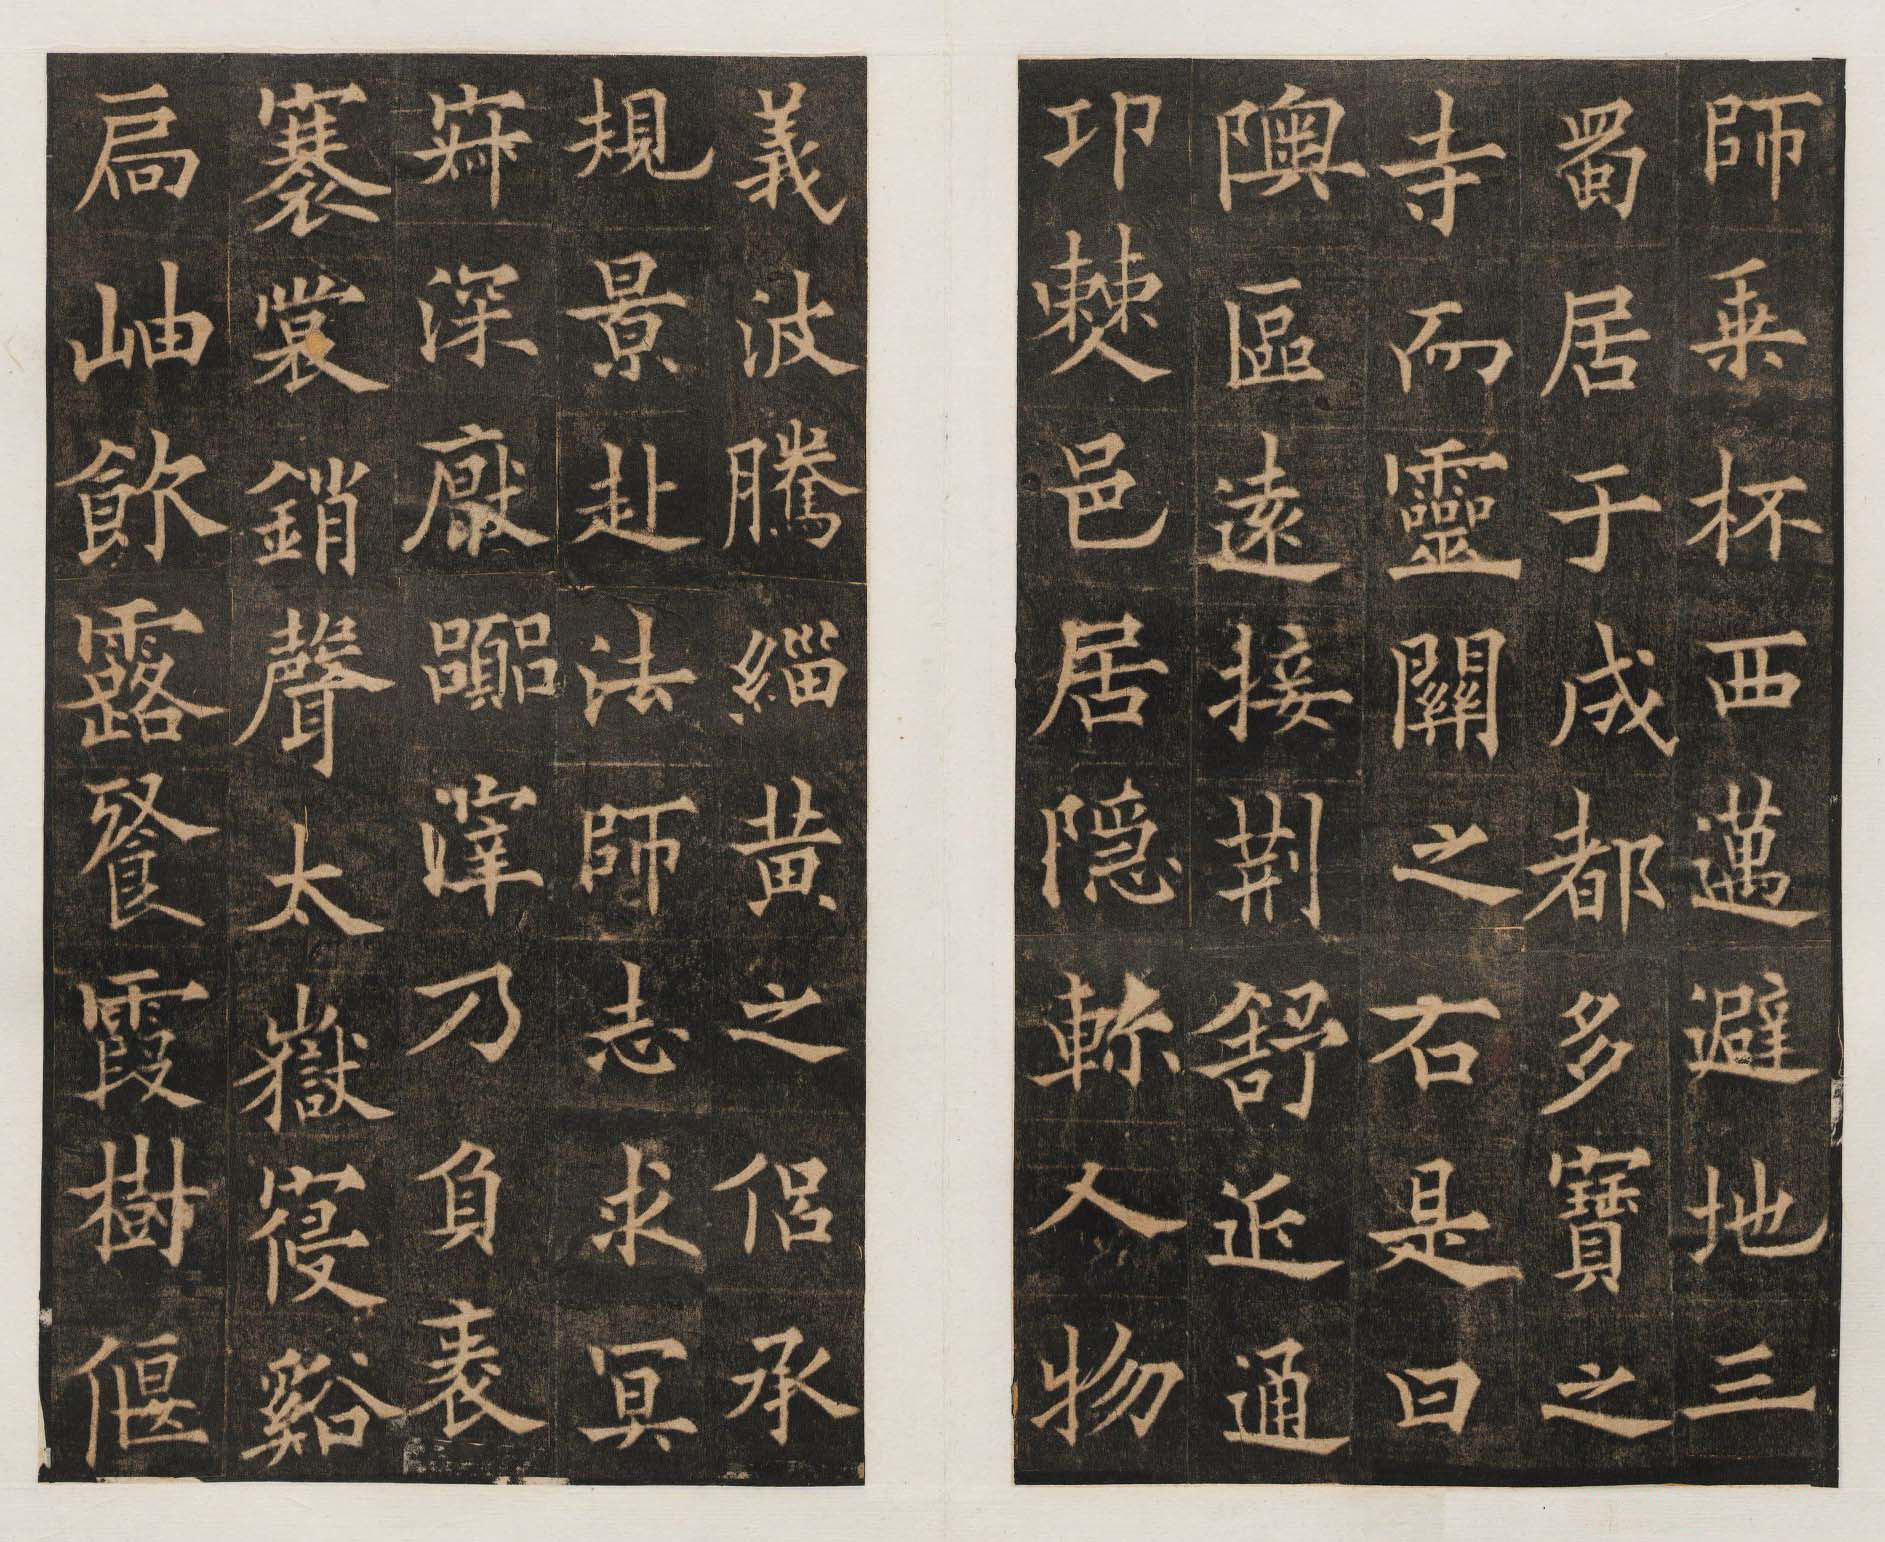 師乗杯西邁避地三
蜀居于成都多寶之
寺而靈關之右是曰
隩區遠接荆舒近通
邛僰邑居隠軫人物
義波騰緇黄之侶承
規景赴法師志求冥
寂深厭嚻滓乃負袠
褰裳銷聲太嶽寢谿
扃岫飲露餐霞樹偃